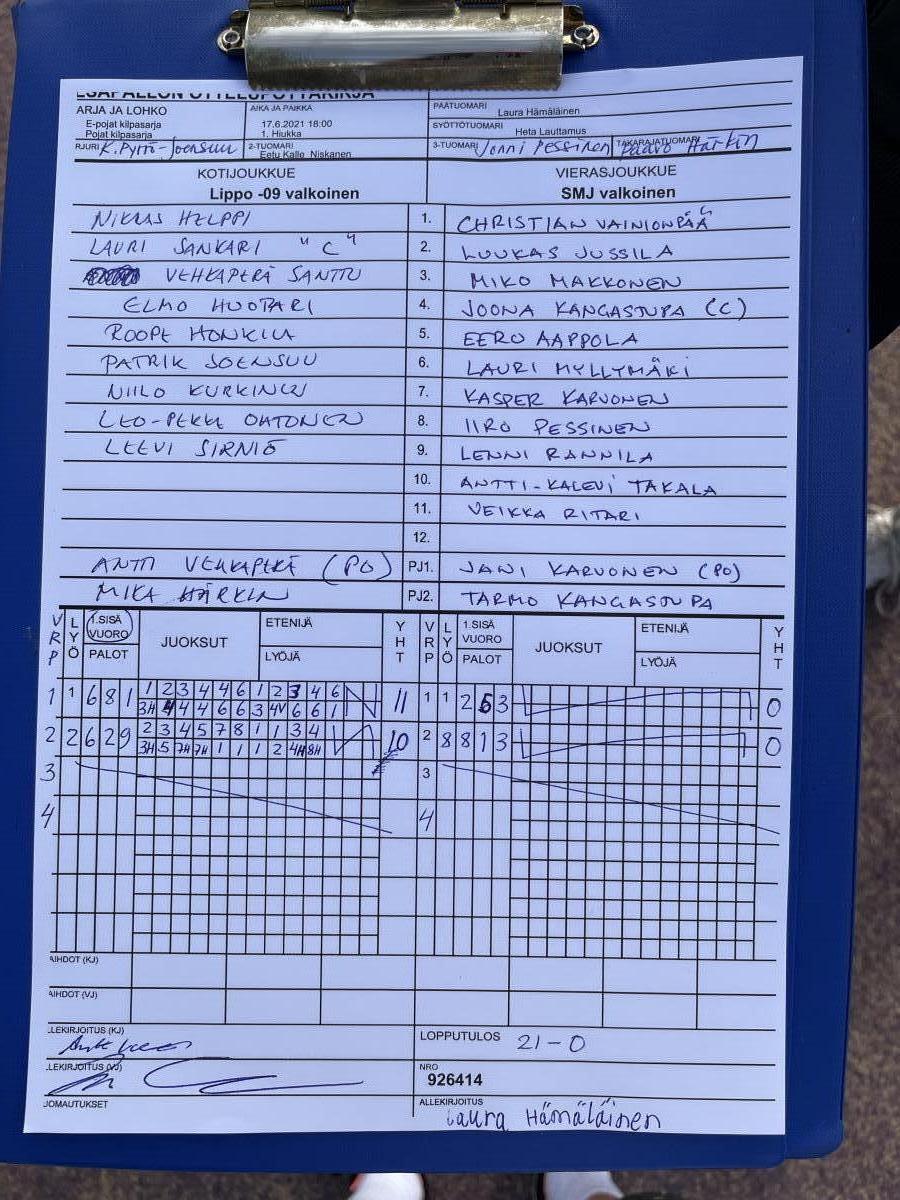 ESÄPALLON OTTELUPÖYTÄKIRJA
ARJA JA LOHKO
E-pojat kilpasarja
Pojat kilpasarja
AIKA JA PAIKKA
17.6.2021 18:00
1. Hiukka
PÄÄTUOMARI
Laura Hämäläinen
SYÖTTÖTUOMARI
Heta Lauttamus
RJURI K. Pyrrö-Joensuu
2-TUOMARI
Eetu Kalle Niskanen
3-TUOMARI Jonni Pessinen
TAKARAJATUOMARI Paavo Härkin
KOTIJOUKKUE
Lippo -09 valkoinen
VIERASJOUKKUE
SMJ valkoinen
NIKLAS HELPPI 1. CHRISTIAN VAINIONPÄÄ
LAURI SANKARI "C" 2. LUUKAS JUSSILA
VEHKAPERÄ SANTTU 3. MIKO MAKKONEN
ELMO HUOTARI 4. JOONA KANGASTUPA (C)
ROOPE 5. EERO AAPPOLA
PATRIK JOENSUU 6. LAURI MYLLYMÄKI
NIILO KURKINEN 7. KASPER KARVONEN
LEO-PEKKA OHTONEN 8. IIRO PESSINEN
LEEVI SIRNIÖ 9. LENNI RANNILA
10. ANTTI-KALEVI TAKALA
11. VEIKKA RITARI
12.
ANTTI VEHKAPERÄ (PO) PJ1. JANI KARVONEN (PO)
MIKA HÄRKIN PJ2. TARMO KANGASTUPA
VRP LYÖ 1.SISÄ VUORO PALOT JUOKSUT ETENIJÄ LYÖJÄ YHT VRP LYÖ 1.SISÄ VUORO PALOT JUOKSUT ETENIJÄ LYÖJÄ YHT
1 1 6 8 1 1 2 3 4 4 6 1 2 3 4 6 11 1 1 2 6 3 0
3H 4 4 4 6 6 3 4V 6 6 1
2 2 6 2 9 2 3 4 5 7 8 1 1 3 4 10 2 8 8 1 3 0
3H 5 7H 7H 1 1 1 2 4H 8H
3 3
4 4
AIHDOT (KJ)
AIHDOT (VJ)
LEKIRJOITUS (KJ)
LOPPUTULOS 21-0
LEKIRJOITUS (VJ)
NRO
926414
JOMAUTUKSET
ALLEKIRJOITUS
Laura Hämäläinen